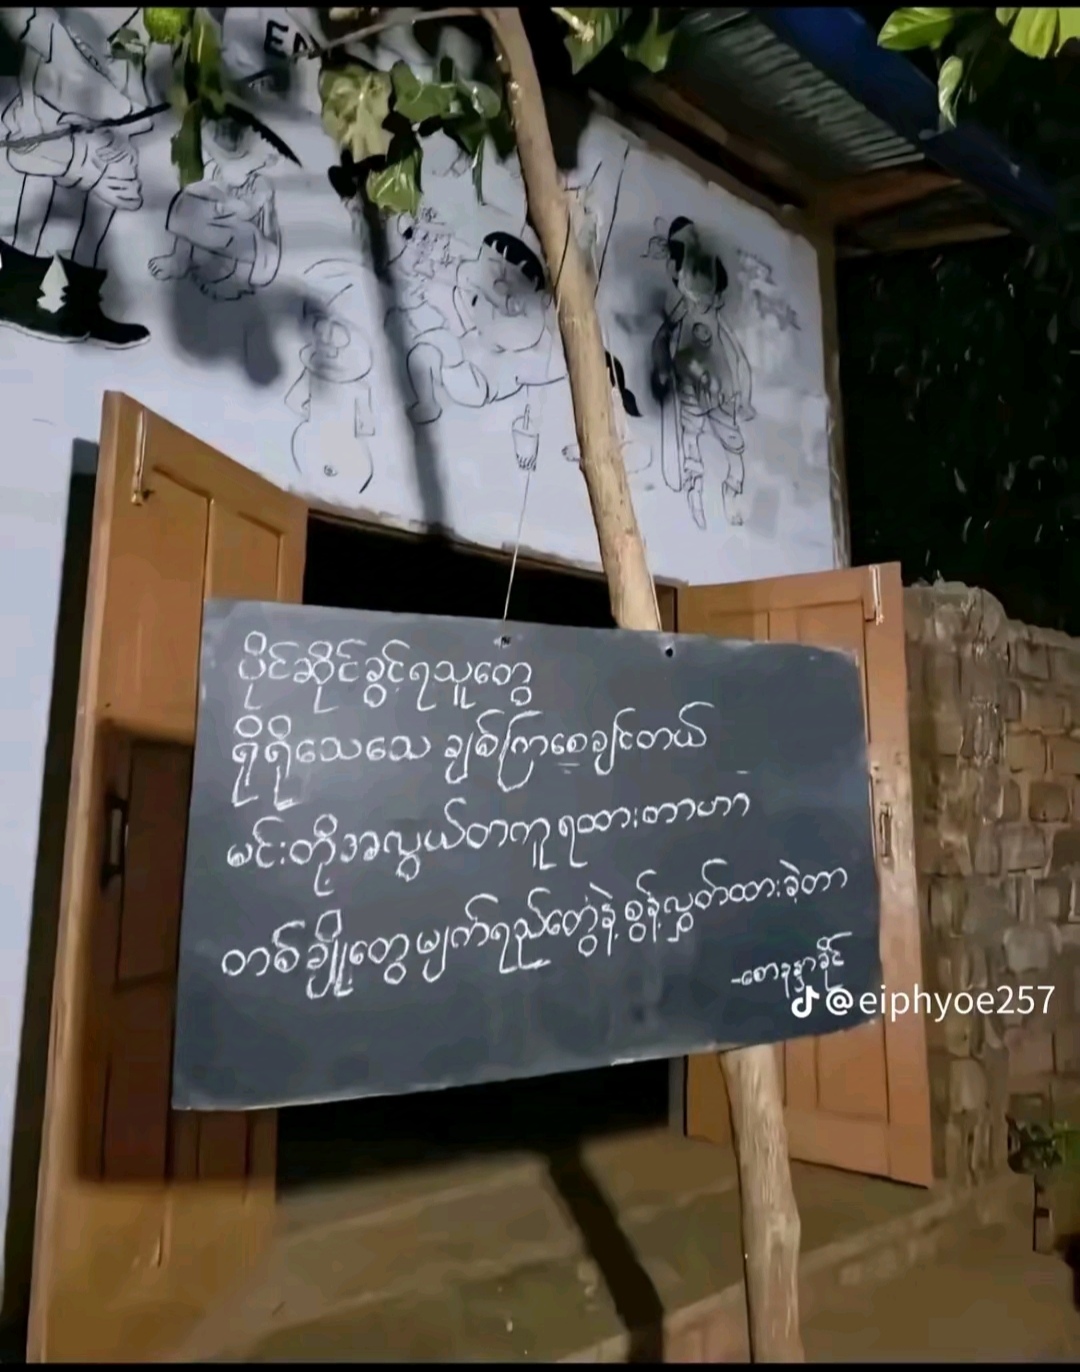 ပိုင်ဆိုင်ခွင့်ရသူတွေ
ရိုရိုသေသေ ချစ်ကြစေချင်တယ်
မင်းတို့အလွယ်တကူရထားတာဟာ
တစ်ချို့တွေမျက်ရည်တွေနဲ့စွန့်လွှတ်ထားခဲ့တာ
@eiphyoe257